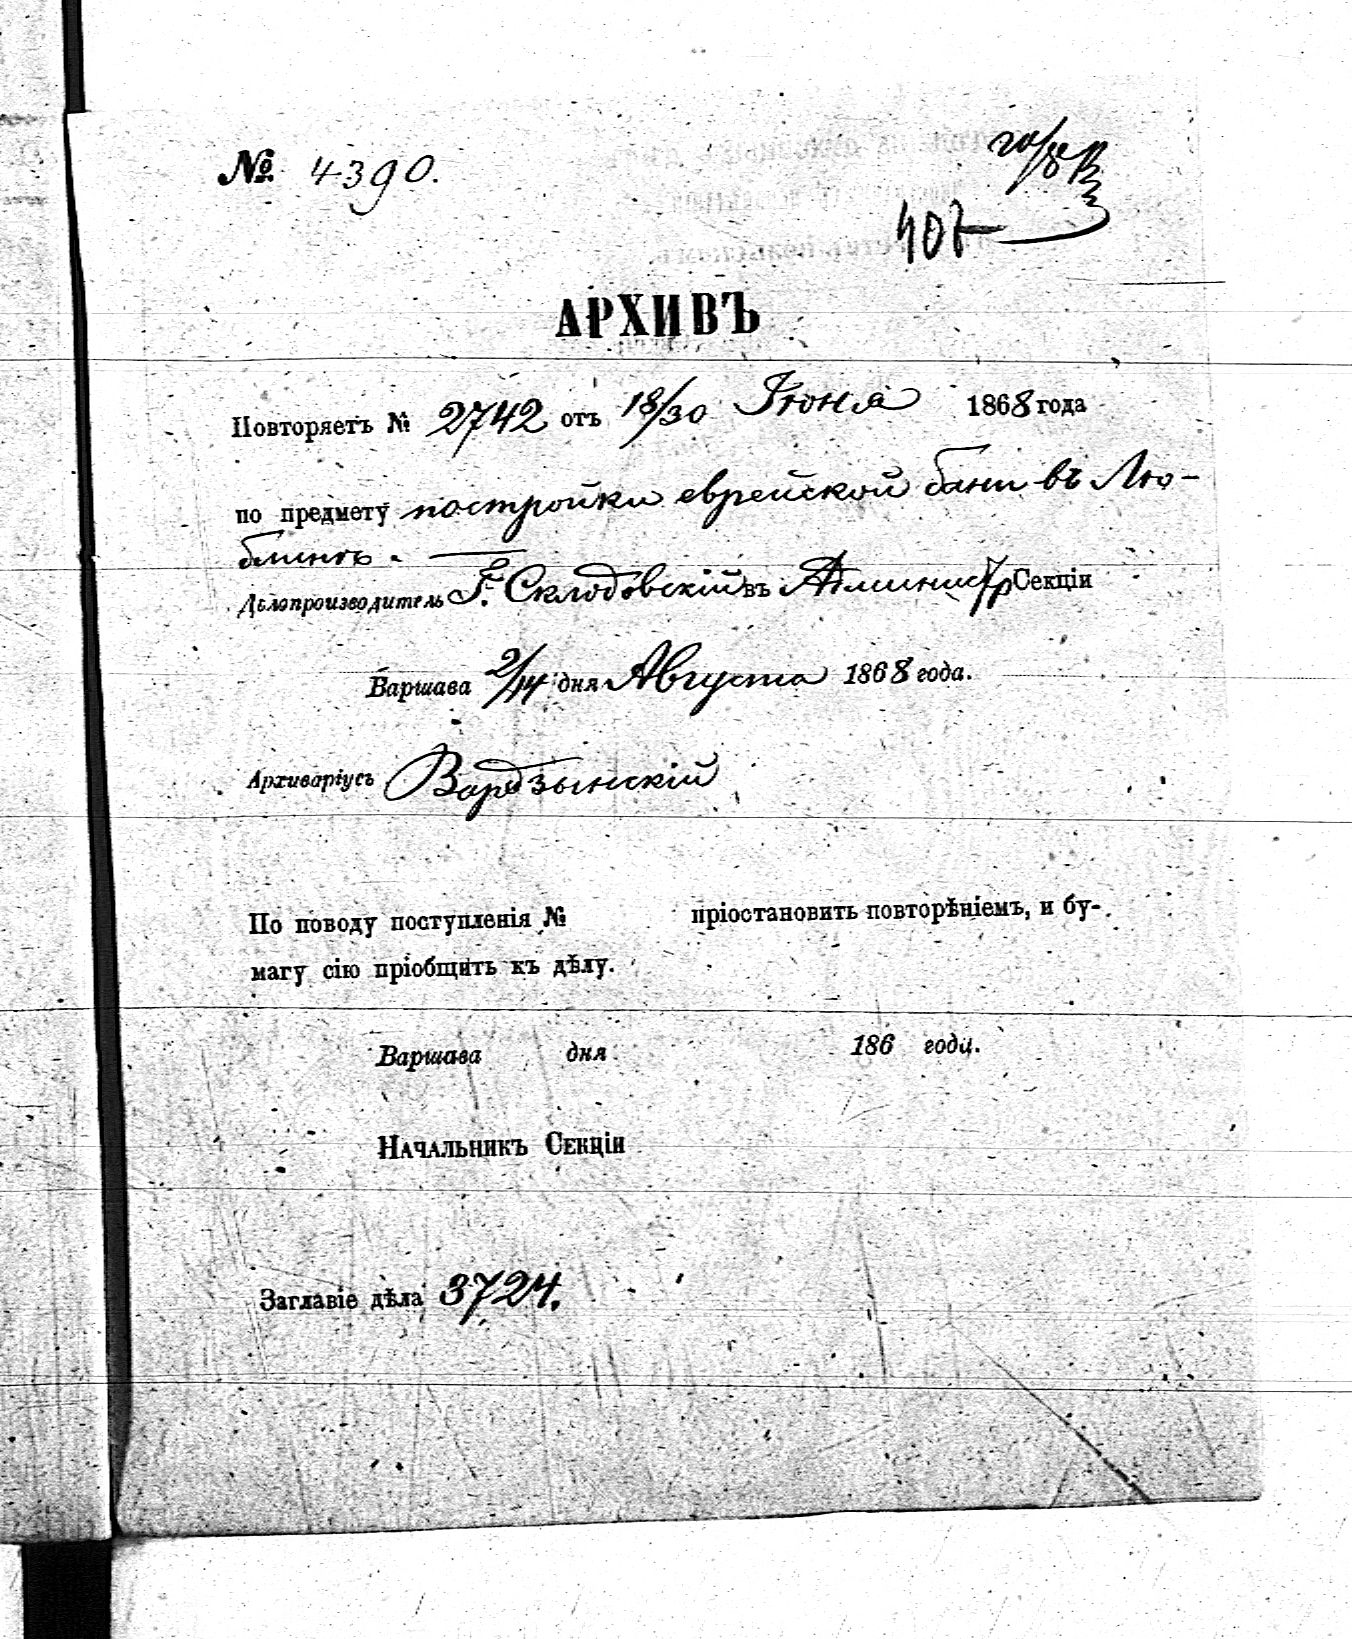 № 4390.
20/8
407
АРХИВЪ
Повторяетъ № 2742 отъ 18/30 Іюня 1868 года
по предмету постройки еврейской бани въ Лю-
блинѣ.
Дѣлопроизводитель Г. Склодовскій въ Администр Секціи
Варшава 2/14 дня Августа 1868 года.
Архиваріусъ Вардзынскій
По поводу поступленія № пріостановить повторѣніемъ, и бу-
магу сію пріобщить къ дѣлу.
Варшава дня 186 года.
Начальникъ Секціи
Заглавіе дѣла 3724.